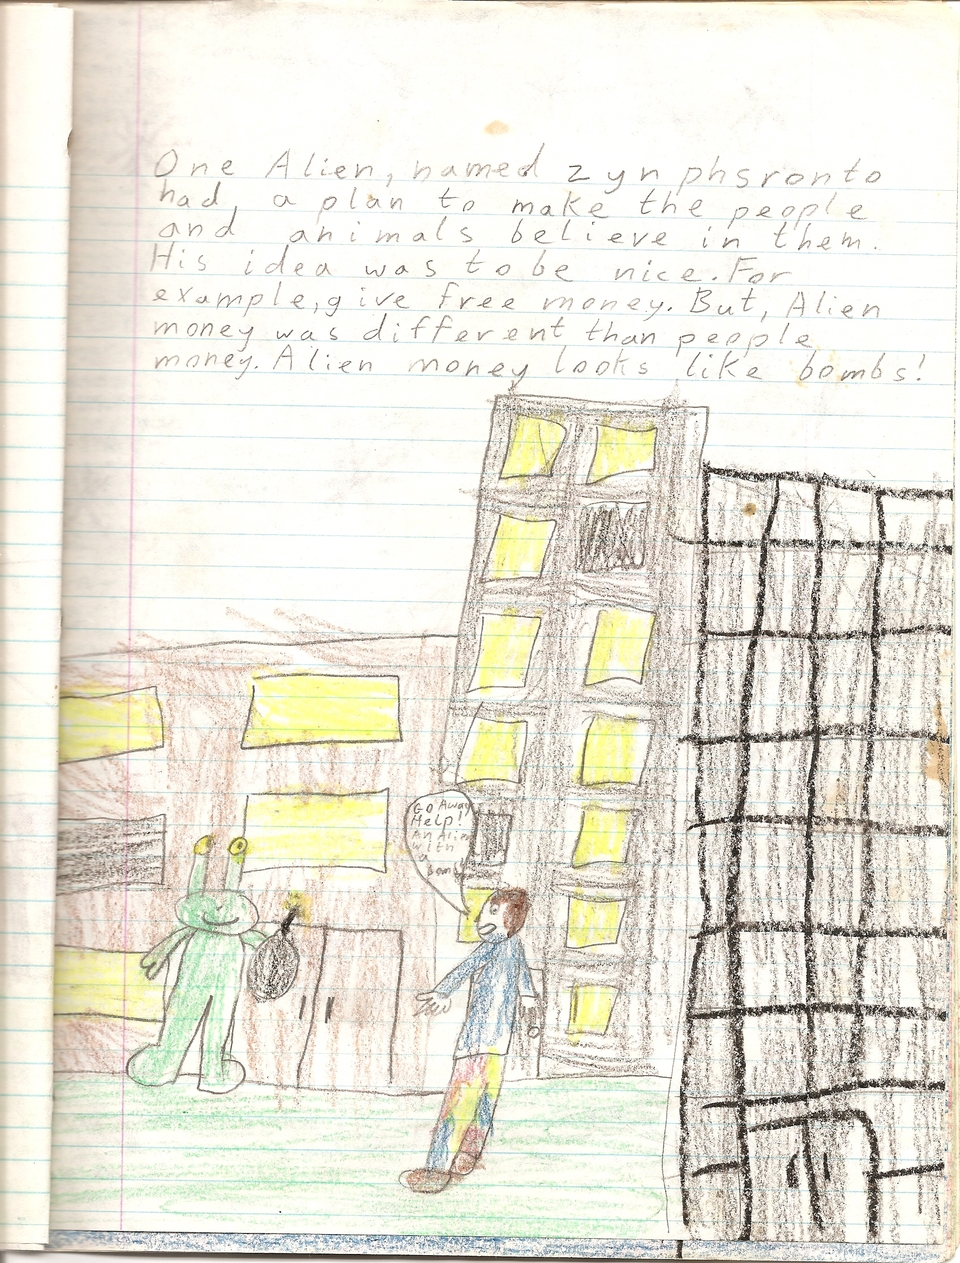 One Alien, named zynphsronto
had, a plan to make the people
and animals believe in them.
His idea was to be nice. For
example, give free money. But, Alien
money was different than people
money. Alien money looks like bombs!
Go Away
Help!
An Alien
with
a
bomb